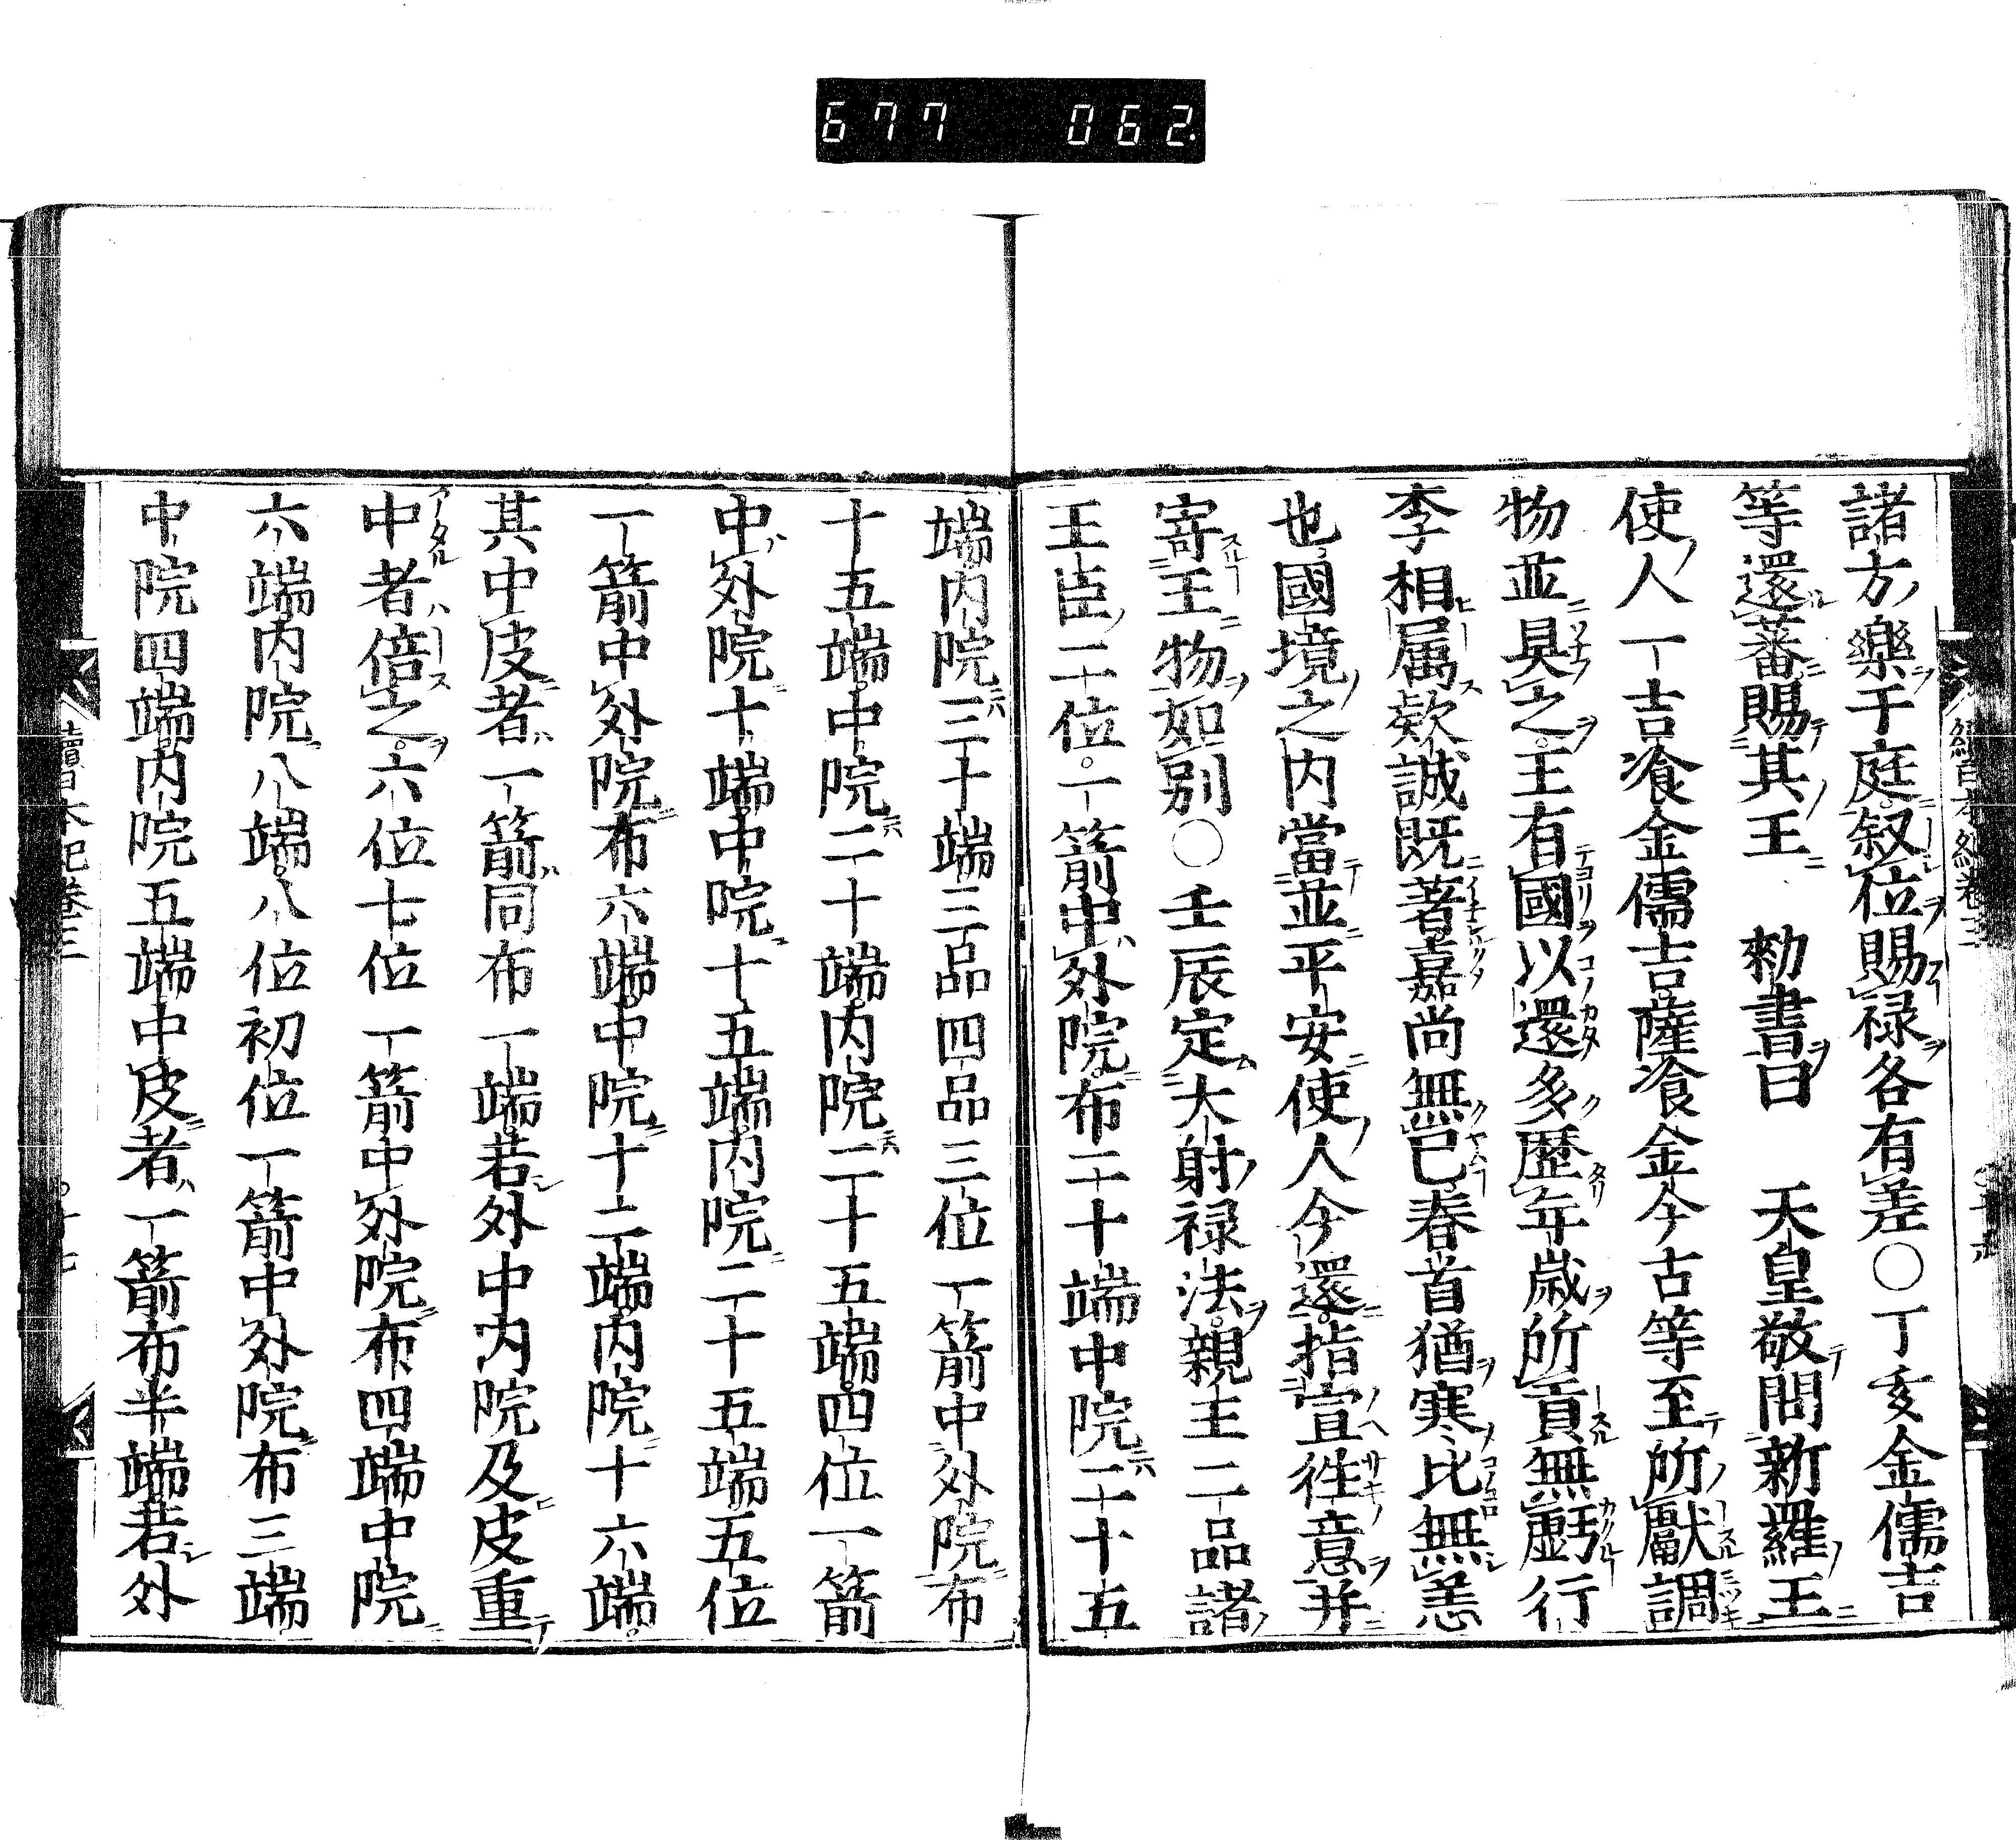 677 062.
諸方樂于庭叙位賜禄各有差〇丁亥金儒吉
等還蕃賜其王 勅書曰 天皇敬問新羅王
使人一吉飡金儒吉薩飡金今古等至所獻調
物並具之王有國以還多歴年歳所貢無虧行
李相属欵誠既著嘉尚無已春首猶寒比無恙
也國境之内當並平安使人今還指宣徃意并
寄王物如別〇壬辰定大射禄法親王二品諸
王臣二位一箭中外院布二十端中院二十五
端内院三十端三品四品三位一箭中外院布
十五端中院二十端内院二十五端四位一箭
中外院十端中院十五端内院二十五端五位
一箭中外院布六端中院十二端内院十六端
其中皮者一箭同布一端若外中内院及皮重
中者倍之六位七位一箭中外院布四端中院
六端内院八端八位初位一箭中外院布三端
中院四端内院五端中皮者一箭布半端若外
續日本紀卷三